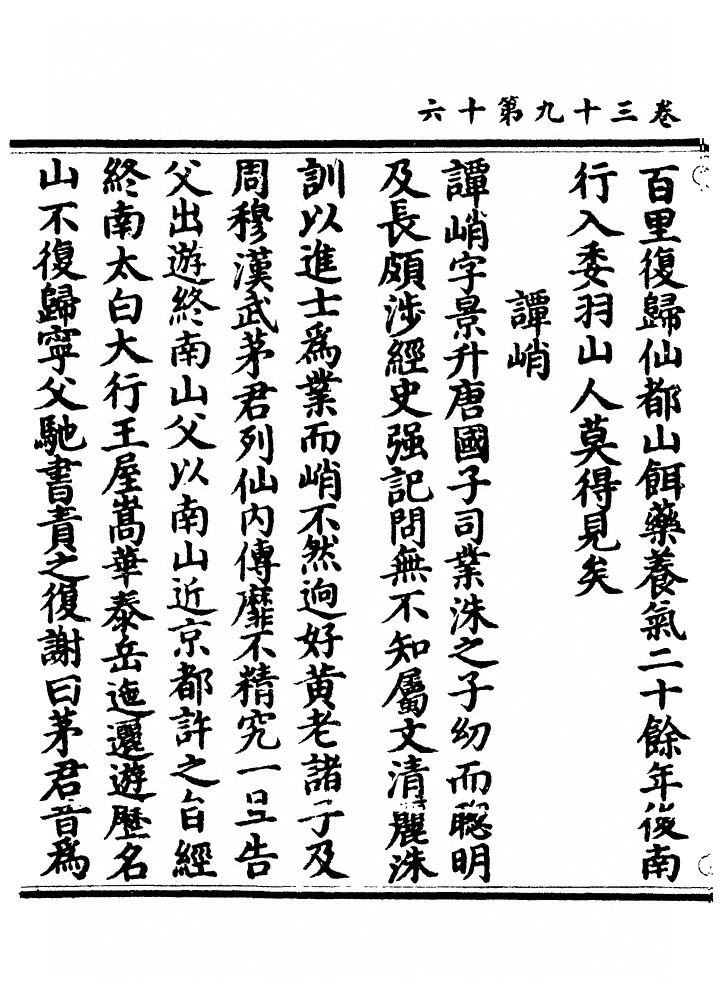 卷三十九第十六
百里復歸仙都山餌藥養氣二十餘年後南
行入委羽山人莫得見矣
譚峭
譚峭字景升唐國子司業洙之子幼而聰明
及長頗涉經史强記問無不知屬文清麗洙
訓以進士爲業而峭不然逈好黄老諸子及
周穆漢武茅君列仙内傳靡不精究一旦告
父出遊終南山父以南山近京都許之自經
終南太白大行王屋嵩華泰岳迤邐遊歷名
山不復歸寧父馳書責之復謝曰茅君昔爲